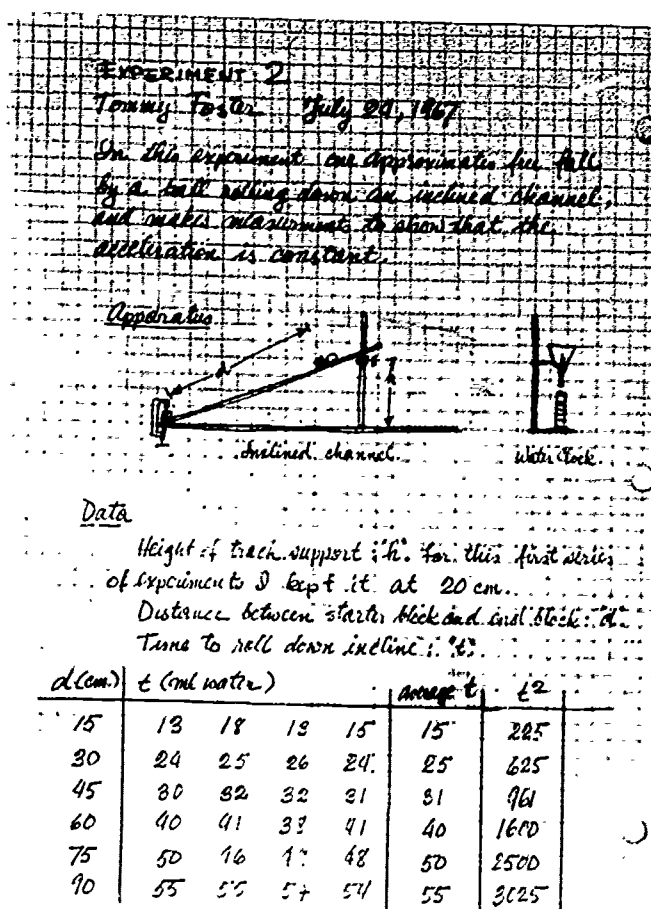 EXPERIMENT 2
Tommy Foster July 29, 1967
In this experiment one approximates free fall
by a ball rolling down an inclined channel,
and makes measurement to show that the
acceleration is constant.
Apparatus
d
h
Inclined channel.
Water Clock.
Data
Height of track support: "h". For this first series
of experiments I kept it at 20 cm.
Distance between starter block and end block: "d".
Time to roll down incline: "t".
d (cm.) t (ml water) average t t²
15 13 18 13 15 15 225
30 24 25 26 24. 25 625
45 30 32 32 31 31 961
60 40 41 41 40 1600
75 50 48 50 2500
90 55 54 55 3025